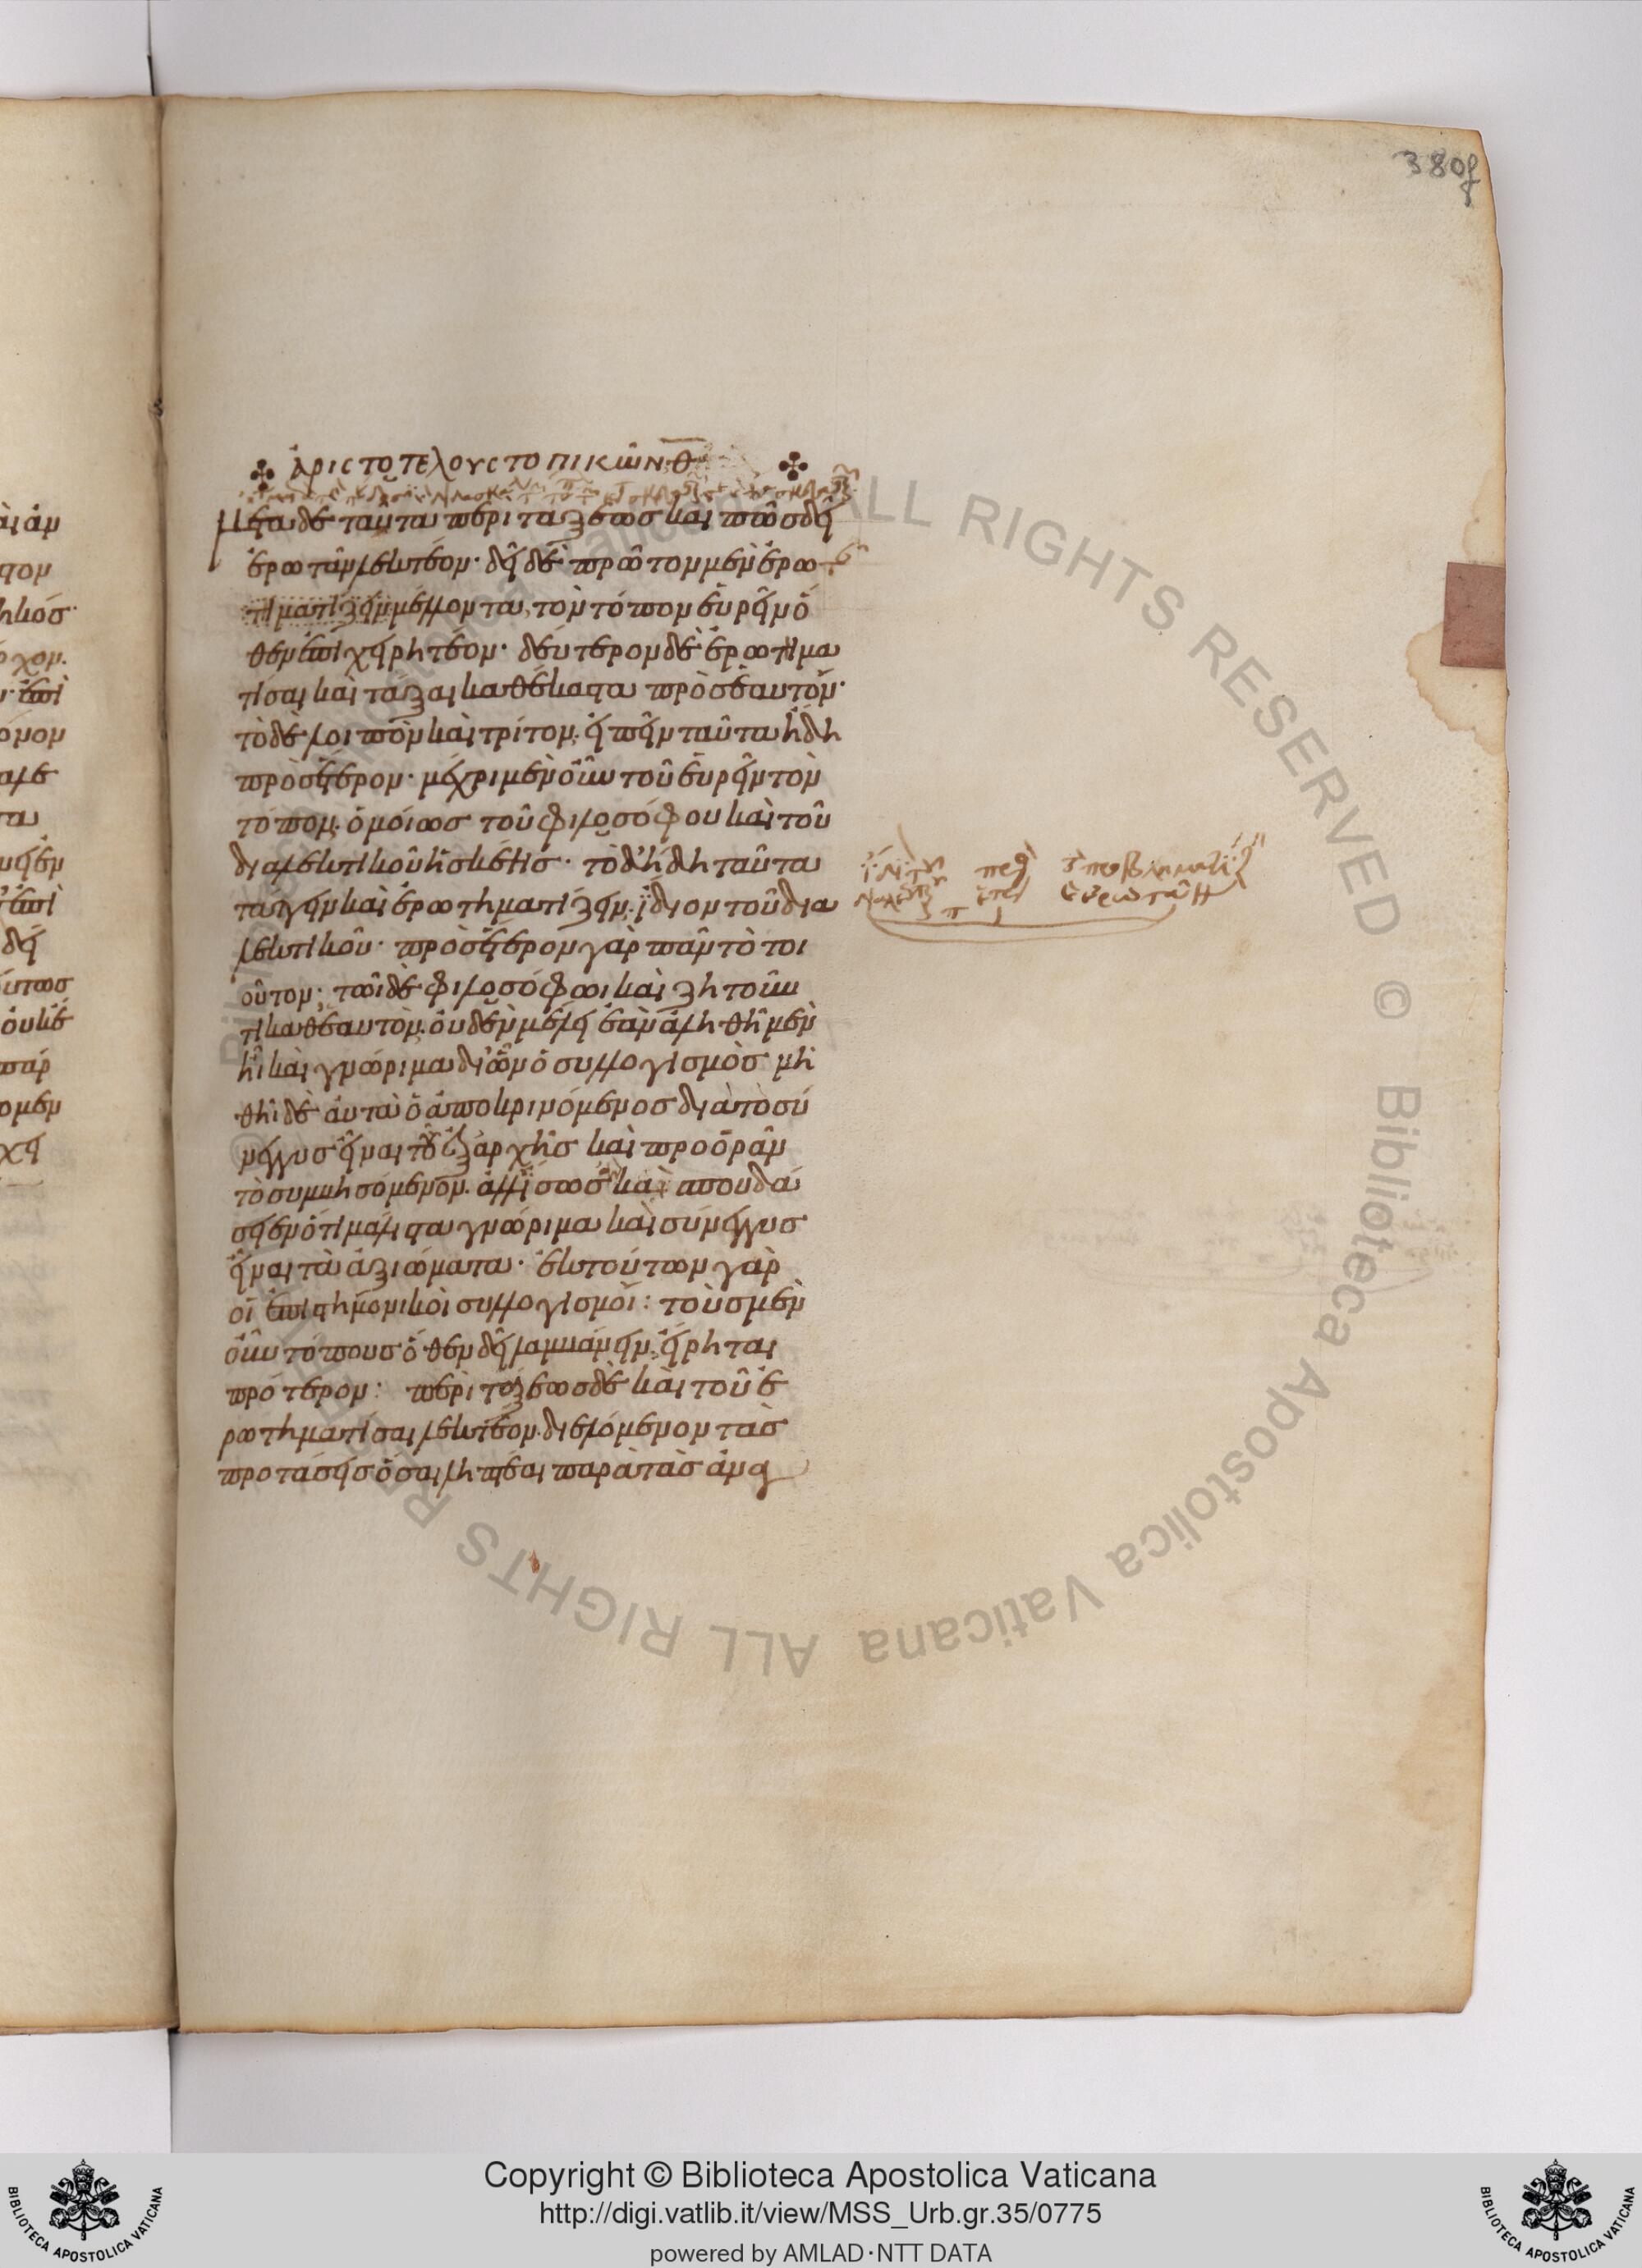 380f
ἀριστοτέλους τοπικῶν θ
Μετα δὲ ταῦτα περὶ τάξεως καὶ πῶς δεῖ
ἐρωτᾶν λεκτέον· δεῖ δὲ πρῶτον μὲν ἐρω
τιματίζειν μέλλοντα, τὸν τόπον εὑρεῖν ὅ
θεν ἐπιχειρητέον· δεύτερον δὲ ἐρωτημα
τίσαι καὶ τάξαι καθέκαστα πρὸς ἑαυτόν·
τὸ δὲ λοιπὸν καὶ τρίτον, εἰπεῖν ταῦτα ἤδη
πρὸς ἕτερον· μέχρι μὲν οὖν τοῦ εὑρεῖν τὸν
τόπον, ὁμοίως τοῦ φιλοσόφου καὶ τοῦ
διαλεκτικοῦ ἡ σκέψις· τὸ δ' ἤδη ταῦτα
τάττειν καὶ ἐρωτηματίζειν, ἴδιον τοῦ δια
λεκτικοῦ· πρὸς ἕτερον γὰρ πᾶν τὸ τοι
οῦτον· τῶι δὲ φιλοσόφωι καὶ ζητοῦν
τι καθ' ἑαυτὸν, οὐδὲν μέλει ἐὰν ἀληθῆ μὲν
ἦι καὶ γνώριμα δι' ὧν ὁ συλλογισμὸς μὴ
θῆι δὲ αὐτὰ ὁ ἀποκρινόμενος διὰ τὸ σύ
νεγγυς εἶναι τοῦ ἐξ ἀρχῆς καὶ προορᾶν
τὸ συμβησόμενον. ἀλλ' ἴσως καὶ σπουδά
σειεν ὅτι μάλιστα γνώριμα καὶ σύνεγγυς
εἶναι τὰ ἀξιώματα· ἐκ τούτων γὰρ
οἱ ἐπιστημονικοὶ συλλογισμοί: τοὺς μὲν
οὖν τόπους ὅθεν δεῖ λαμβάνειν, εἴρηται
πρότερον: περὶ τάξεως δὲ καὶ τοῦ ἐ
ρωτηματίσαι λεκτέον. διελόμενον τὰς
προτάσεις ὅσαι ληπτέαι παρὰ τὰς ἀναγ
© Biblioteca Apostolica Vaticana ALL RIGHTS RESERVED
© Biblioteca Apostolica Vaticana ALL RIGHTS RESERVED
Copyright © Biblioteca Apostolica Vaticana
http://digi.vatlib.it/view/MSS_Urb.gr.35/0775
powered by AMLAD·NTT DATA
BIBLIOTECA APOSTOLICA VATICANA
BIBLIOTECA APOSTOLICA VATICANA